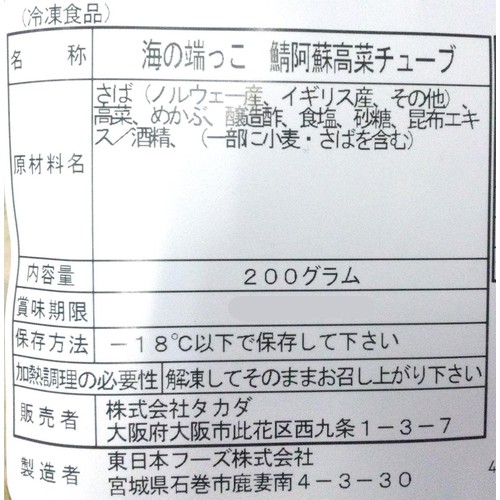 (冷凍食品)
名 称 海の端っこ 鯖阿蘇高菜チューブ
原材料名 さば(ノルウェー産、イギリス産、その他)、
高菜、めかぶ、醸造酢、食塩、砂糖、昆布エキ
ス/酒精、(一部に小麦・さばを含む)
内容量 200グラム
賞味期限
保存方法 -18℃以下で保存して下さい
加熱調理の必要性 解凍してそのままお召し上がり下さい
販売者 株式会社タカダ
大阪府大阪市此花区西九条1-3-7
製造者 東日本フーズ株式会社
宮城県石巻市鹿妻南4-3-30
4